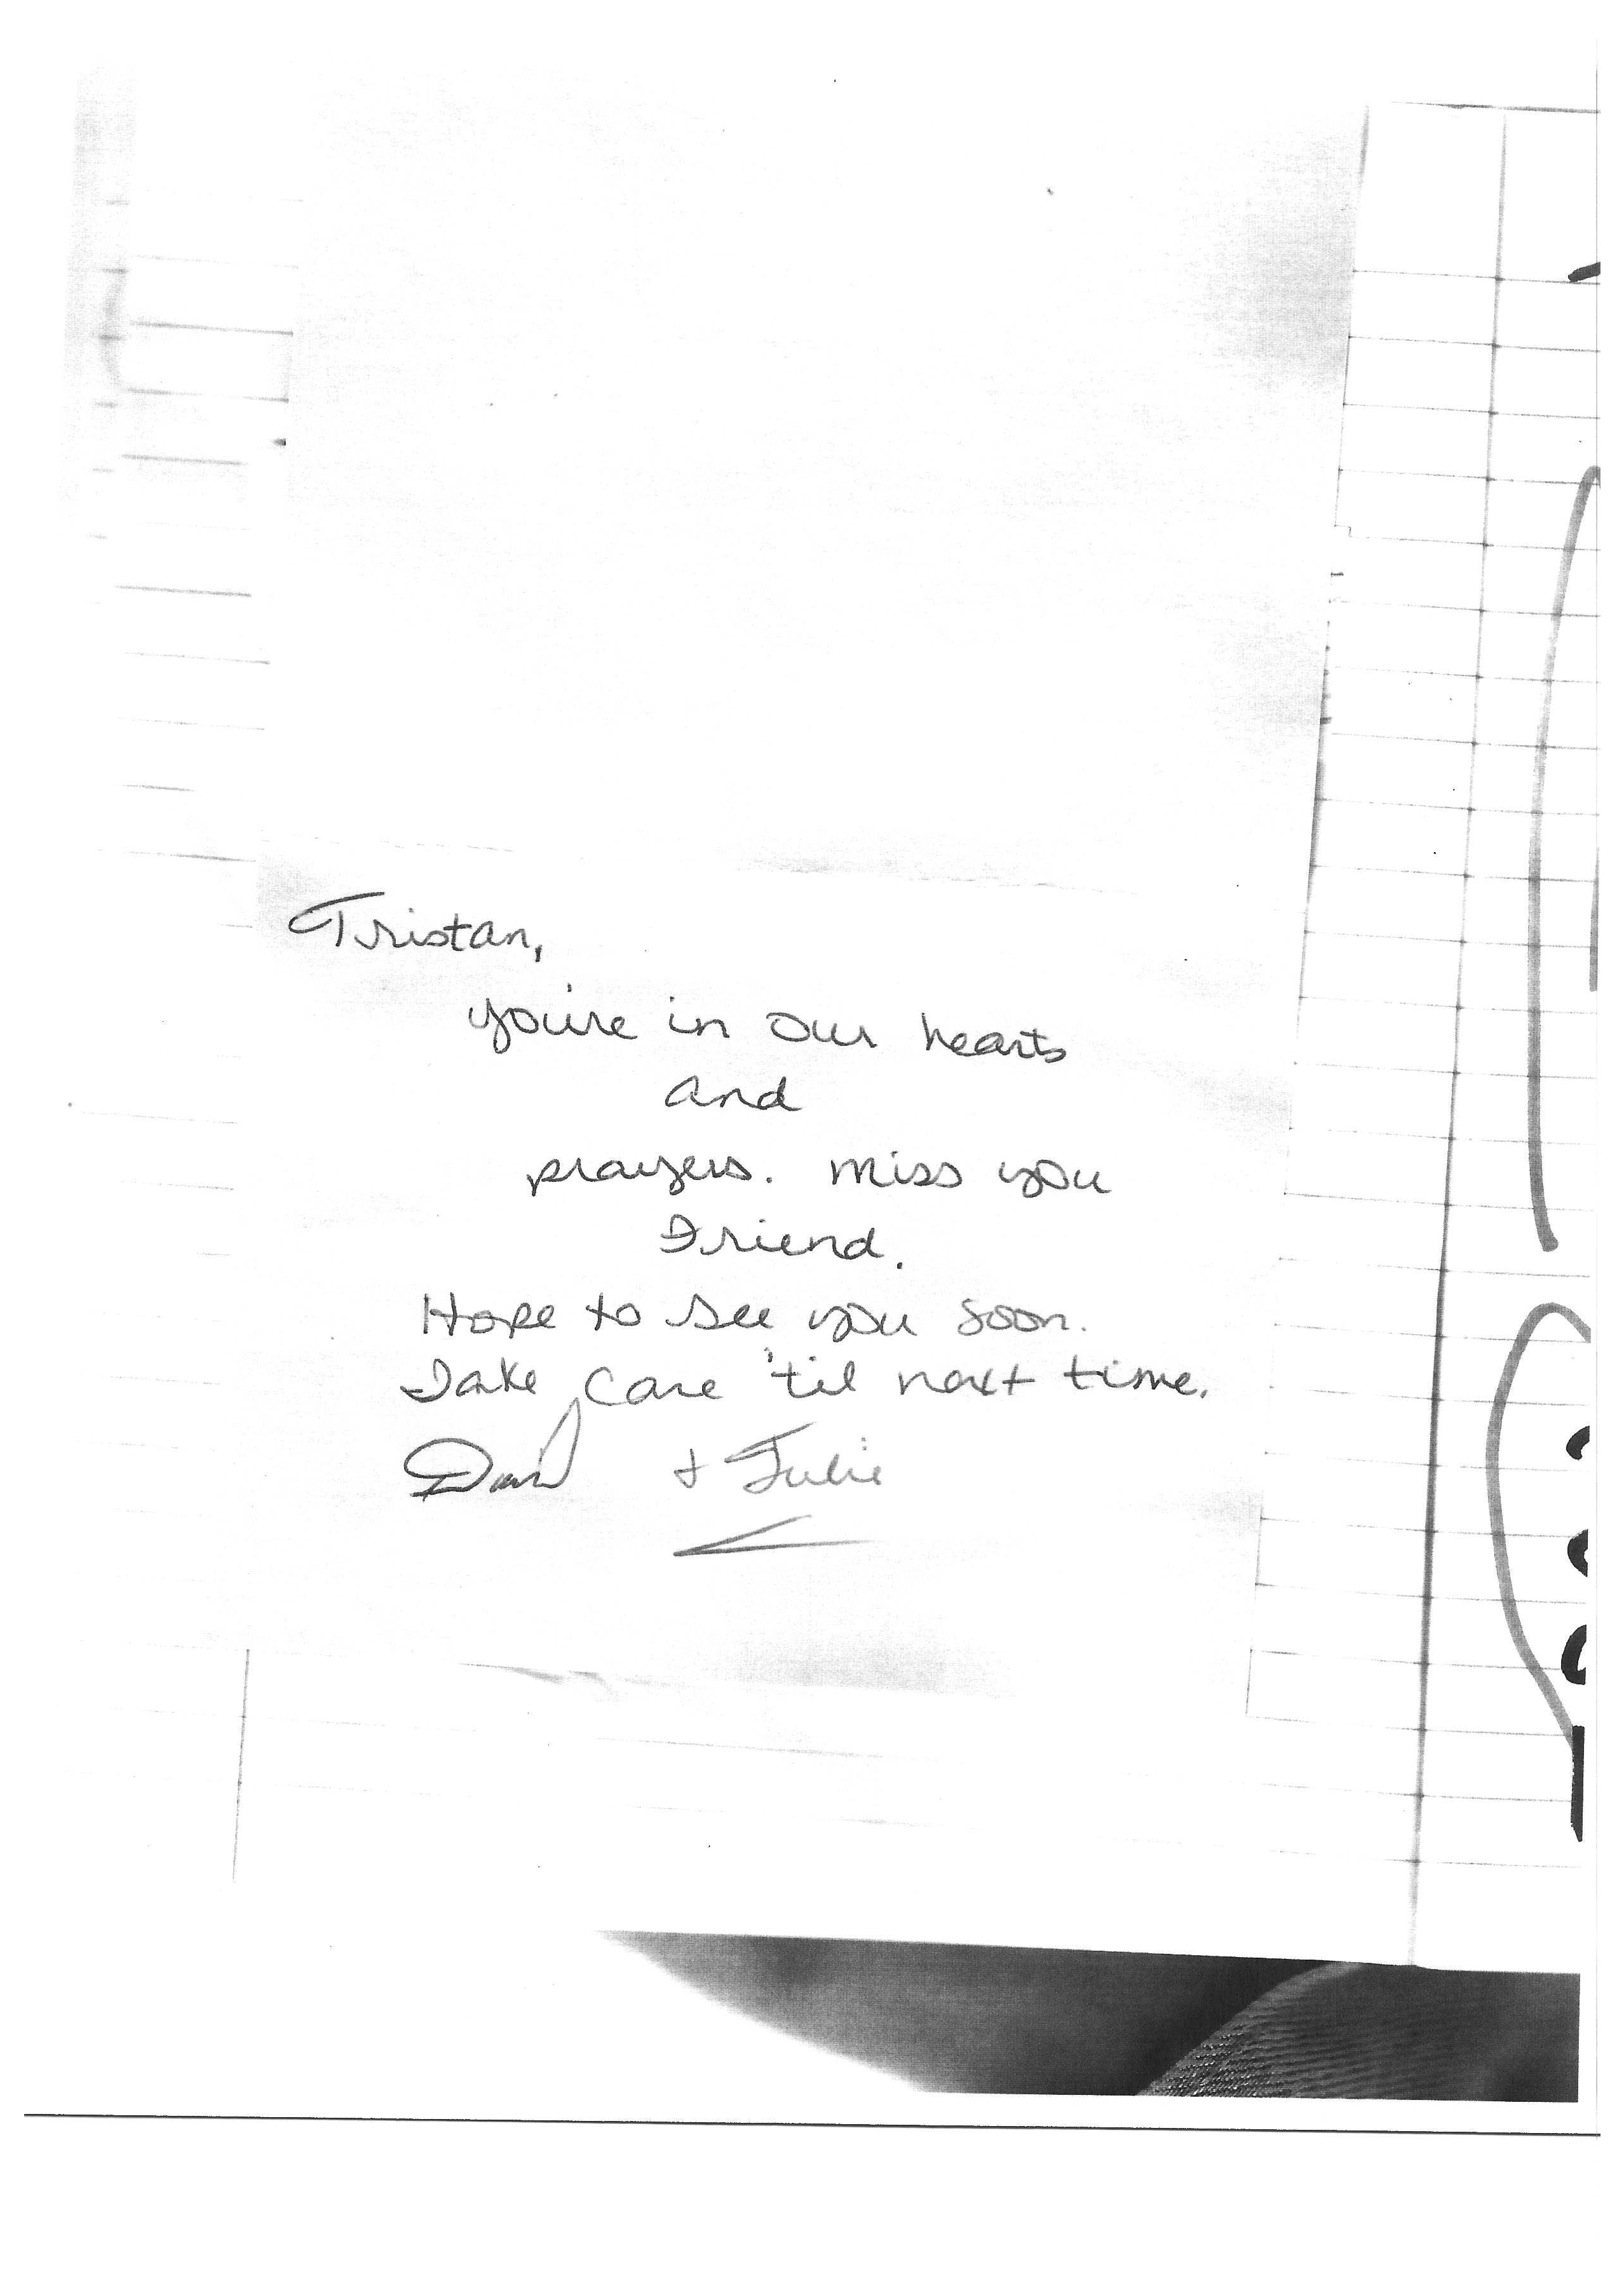 Tristan,
you're in our hearts
and
prayers. miss you
Friend.
Hope to see you soon.
Take care 'til next time.
David + Julie